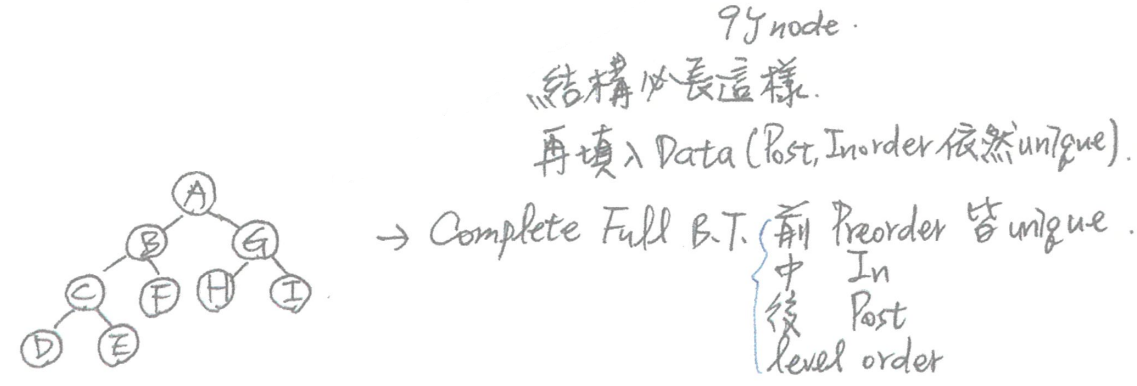 9個node.
∴結構必長這樣.
再填入Data(Post,Inorder依然unique).
→ Complete Full B.T. 前 Preorder 皆unique.
中 In
後 Post
level order
A
B G
C F H I
D E